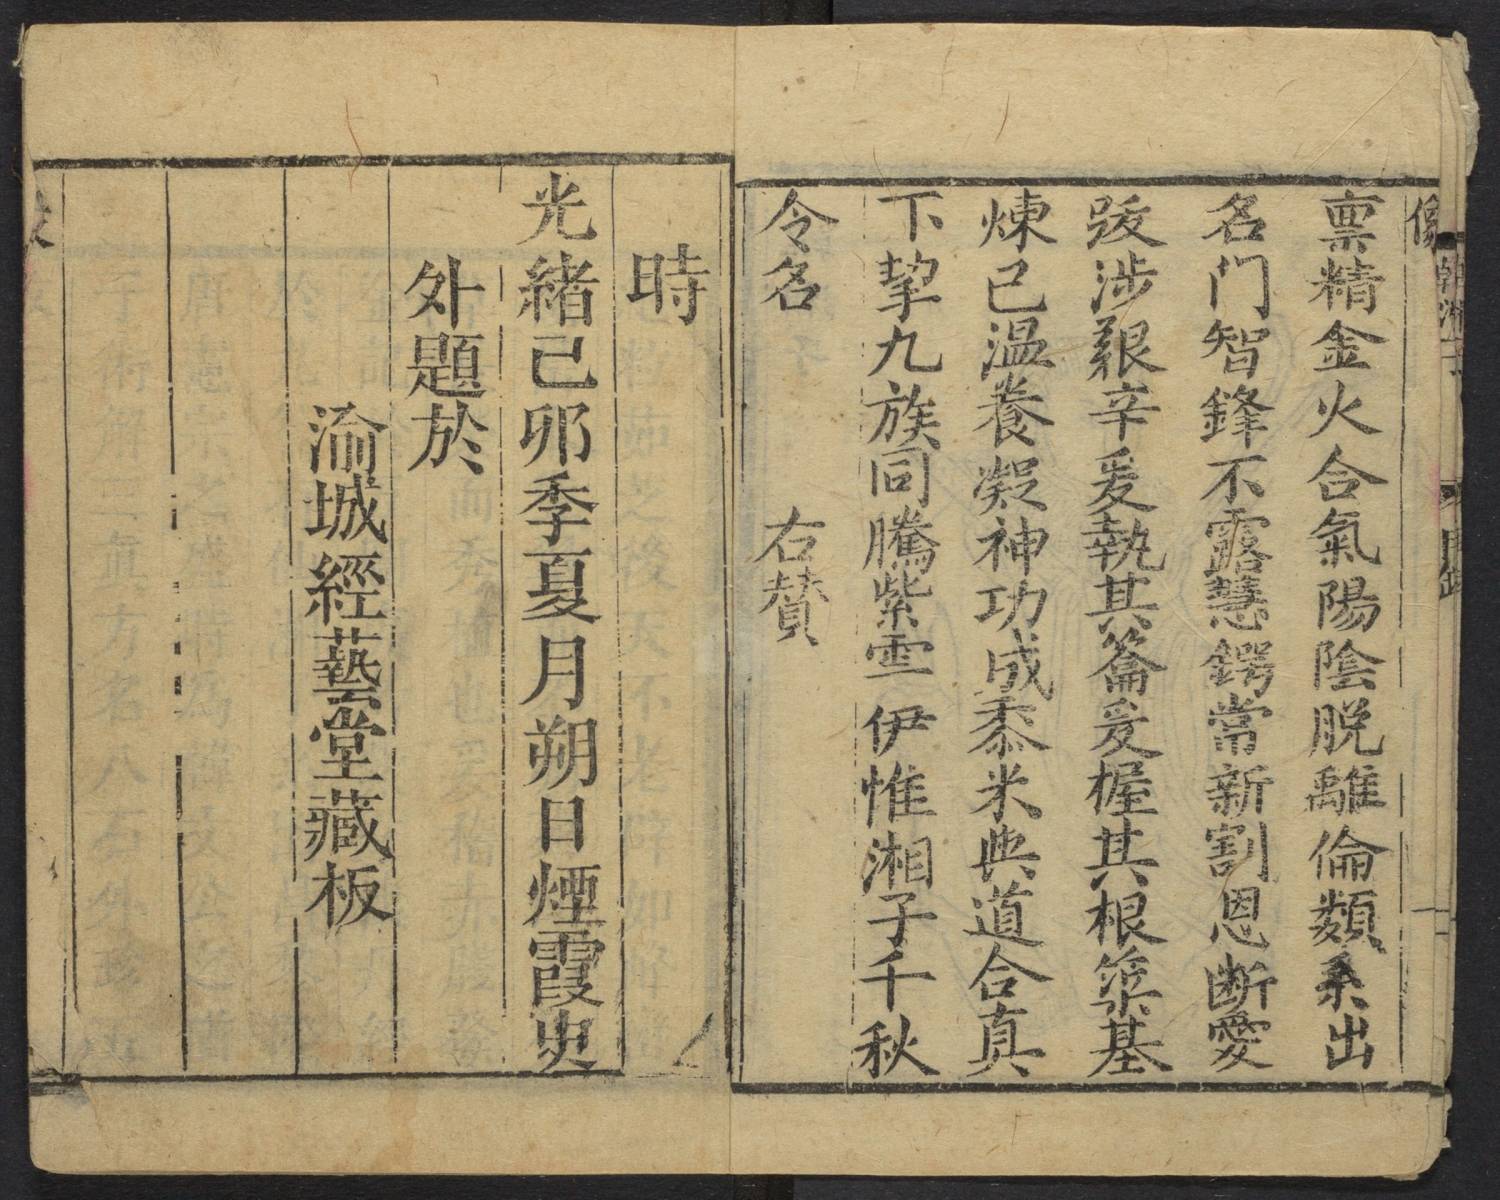 像
稟精金火合氣陽陰脱離倫類系出
名門智鋒不露慧鍔常新割恩断愛
跋涉艱辛爰執其籥爰握其根築基
煉已温養凝神功成黍米與道合真
下挈九族同騰紫雲伊惟湘子千秋
令名
右賛
時
光緒己卯季夏月朔日煙霞史
外題於
渝城經藝堂藏板